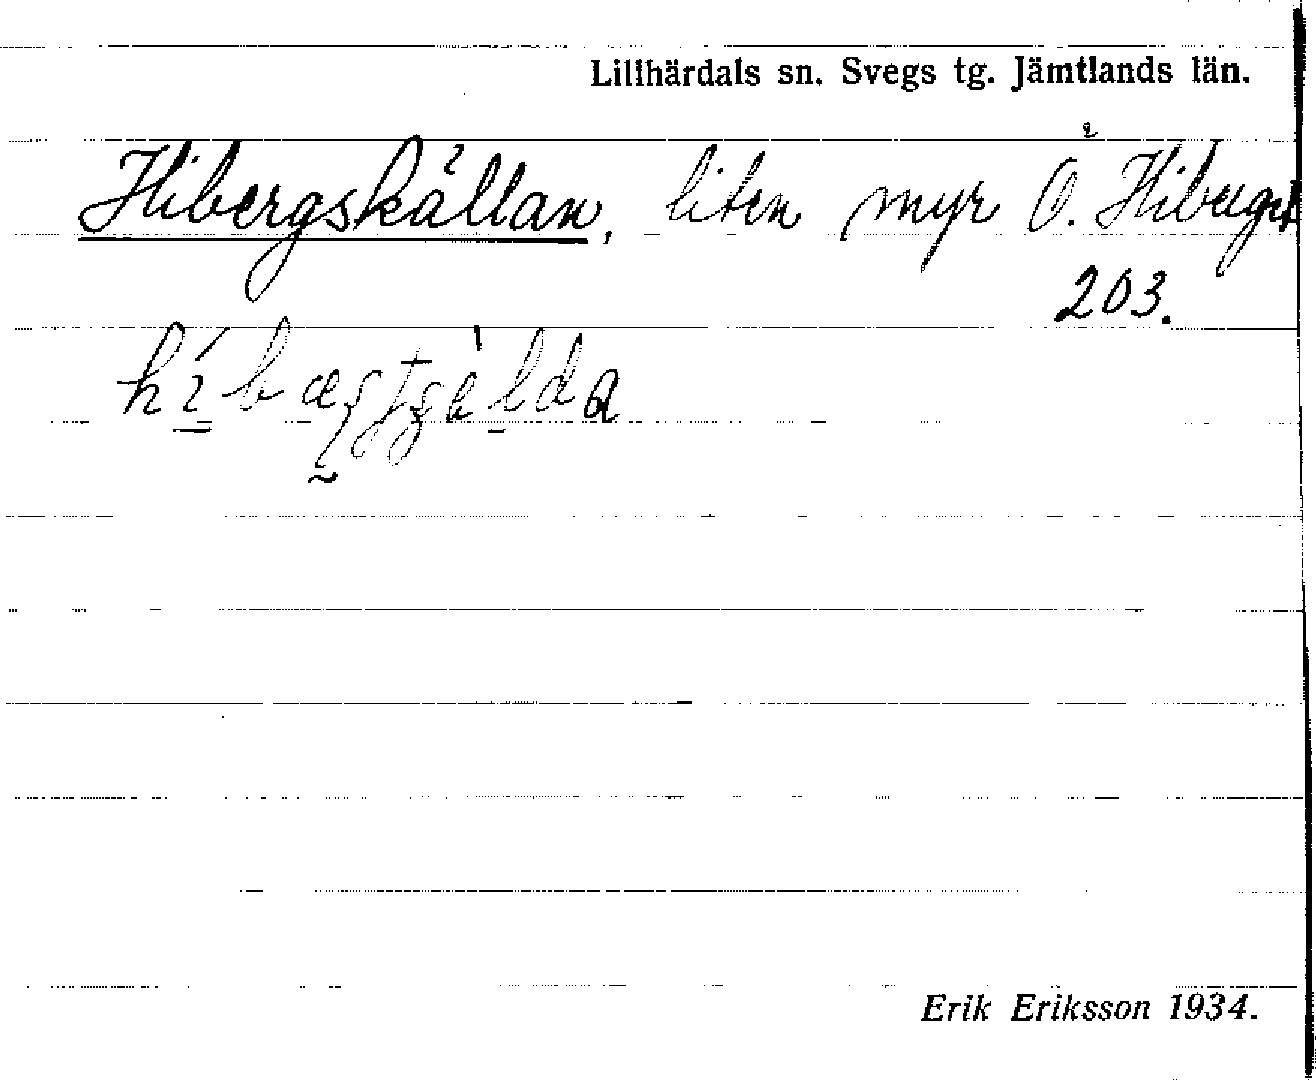 Lillhärdals sn. Svegs tg. Jämtlands län.
Hibergskällan, liten myr Ö. Hiberget
203.
Erik Eriksson 1934.